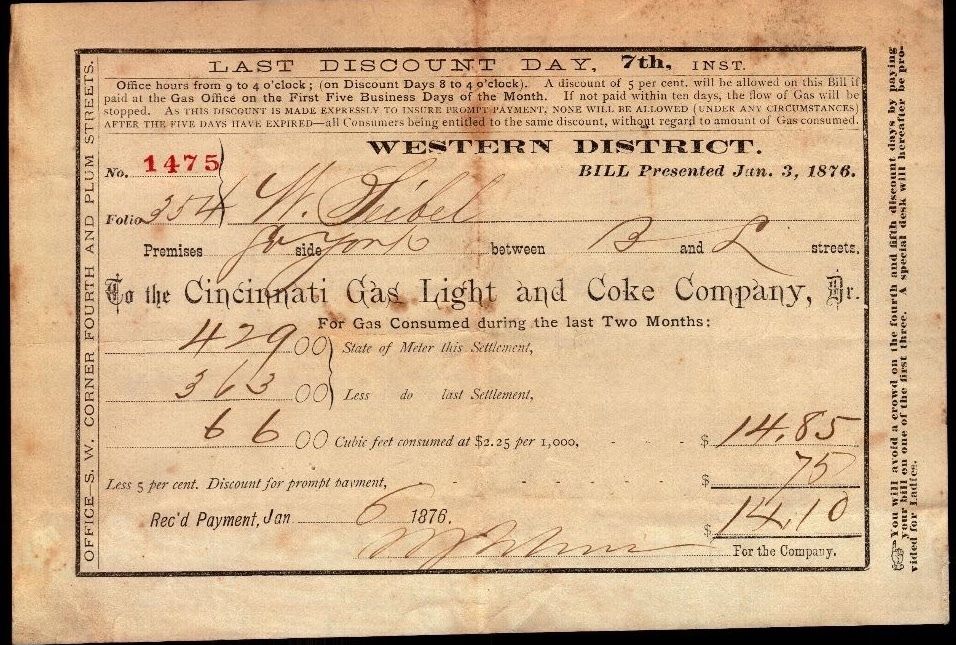 LAST DISCOUNT DAY, 7th, INST.
Office hours from 9 to 4 o'clock; (on Discount Days 8 to 4 o'clock). A discount of 5 per cent. will be allowed on this Bill if
paid at the Gas Office on the First Five Business Days of the Month. If not paid within ten days, the flow of Gas will be
stopped. AS THIS DISCOUNT IS MADE EXPRESSLY TO INSURE PROMPT PAYMENT, NONE WILL BE ALLOWED (UNDER ANY CIRCUMSTANCES)
AFTER THE FIVE DAYS HAVE EXPIRED—all Consumers being entitled to the same discount, without regard to amount of Gas consumed.
WESTERN DISTRICT.
No. 1475
BILL Presented Jan. 3, 1876.
Folio 354 W.
Premises side York between B and L streets.
To the Cincinnati Gas Light and Coke Company, Dr.
For Gas Consumed during the last Two Months:
42900 State of Meter this Settlement,
36300 Less do last Settlement,
6600 Cubic feet consumed at $2.25 per 1,000, - - - $ 14.85
Less 5 per cent. Discount for prompt payment, - - - - - - $ 75
Rec'd Payment, Jan 6 1876. $ 14.10
For the Company.
OFFICE—S. W. CORNER FOURTH AND PLUM STREETS.
You will avoid a crowd on the fourth and fifth discount days by paying
your bill on one of the first three. A special desk will hereafter be pro-
vided for Ladies.